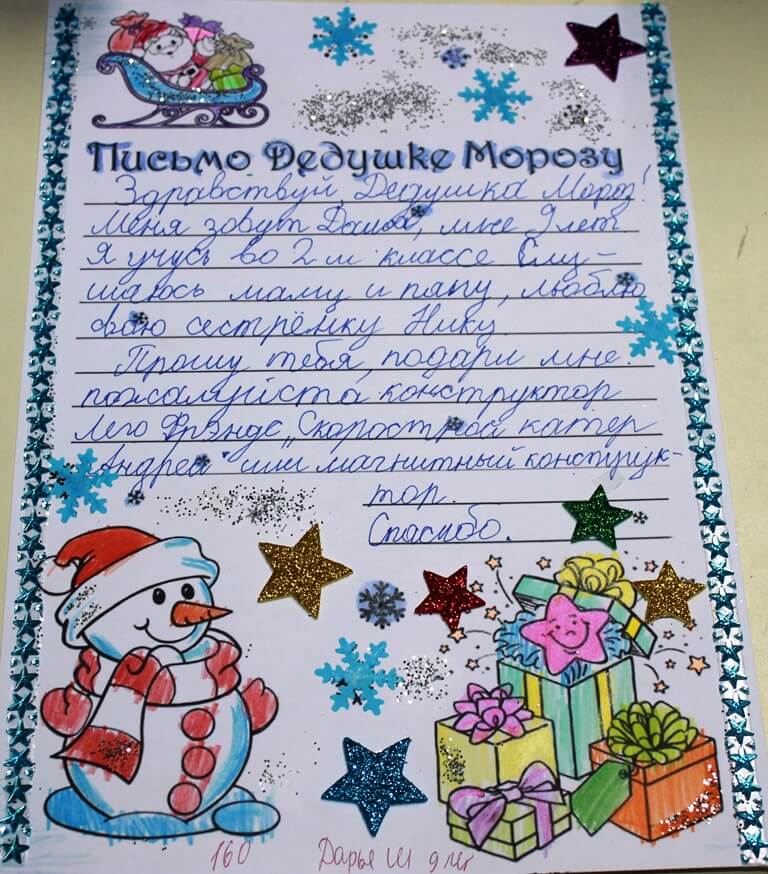 Письмо Дедушке Морозу
Здравствуй, Дедушка Мороз!
Меня зовут Даша, мне 9 лет
Я учусь во 2 м классе Слу-
шаюсь маму и папу, люблю
свою сестрёнку Нику.
Прошу тебя, подари мне
пожалуйста конструктор
Лего Фрэндс „Скоростной катер
Андреа" или магнитный конструк-
тор.
Спасибо.
160 Дарья Ш 9 лет